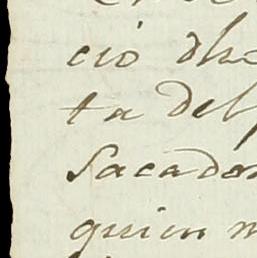 cio dho
ta del
Sacador
quien m